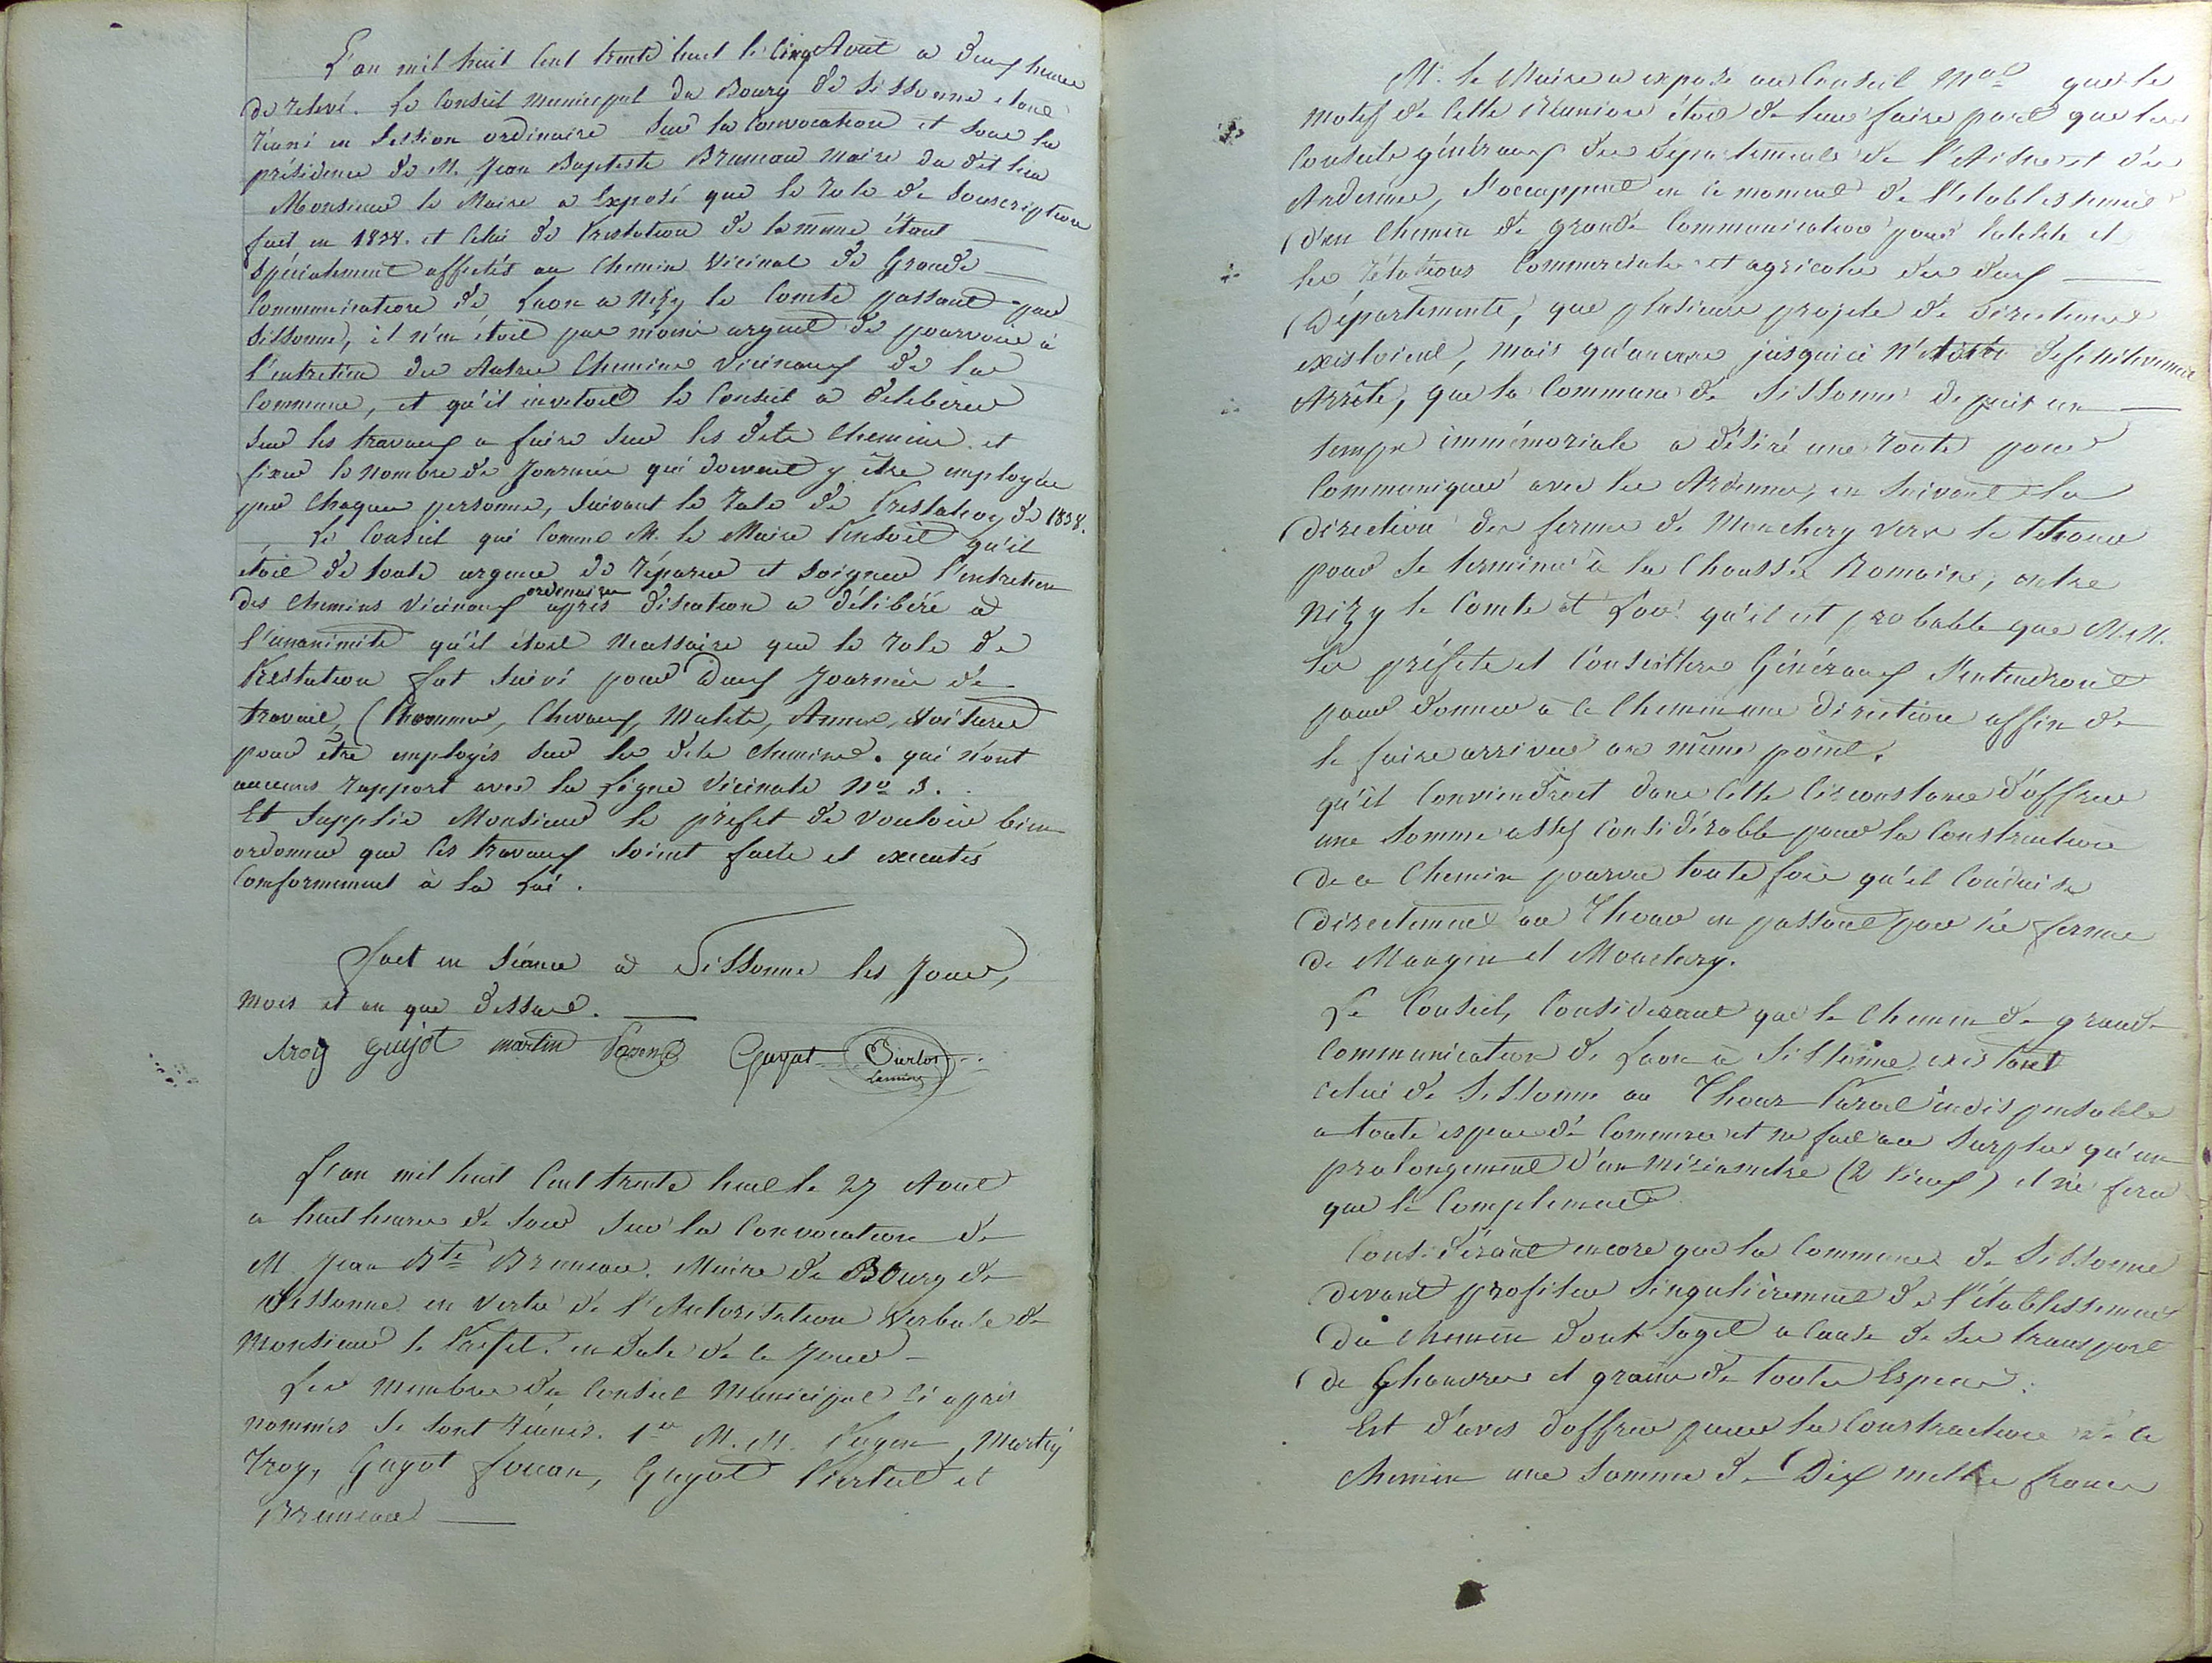 L'an mil huit Cent trente huit le Cinq Aout a deux heures
de relevé. Le Conseil municipal du Bourg de Sissonne étant
réuni en Session ordinaire Sur la Convocation et Sous la
présidence de M. Jean Baptiste Bruneau Maire du dit lieu
Monsieur le Maire a Exposé que le role de Souscription
fait en 1838. et Celui de Prestation de la même étant
spécialement affectés au Chemin Vicinal de Grande
Communication de Laon a Nizy le Comte passant par
Sissonne, il n'en étoit pas moins urgent de pourvoir à
l'entretien des Autres Chemins Vicinaux de la
Commune, et qu'il invitoit le Conseil a déliberer
Sur les travaux a faire Sur les dits Chemins et
fixer le nombre de Journées qui doivent y être employées
par Chaque personne, Suivant le role de Prestation de 1838.
Le Conseil qui Comme M. le Maire Pensoit qu'il
étoit de toute urgence de réparer et soigner l'entretien
des Chemins Vicinaux ordinaires après discution a délibéré a
l'unanimité qu'il étoit necessaire que le role de
Prestation fut suivi pour Deux Journées de
travail, (hommes, Chevaux, Mulets, Annes, Voitures
pour être employés Sur les dits Chemins. qui n'ont
aucuns rapport avec la Ligne Vicinale No 3.
Et Supplie Monsieur le préfet de vouloir bien
ordonner que les travaux Soient faits et executés
Conformement à la Loi.
fait en Séance a Sissonne les Jour,
mois et an que dessus.
troy Guyot martin Guyot Curlot
L'an mil huit Cent trente huit le 27 Aout
a huit heures de Soir Sur la Convocation de
M. Jean Bte Bruneau. Maire du Bourg de
Sissonne en vertu de l'Autorisation Verbale de
Monsieur le Préfet. en Date de ce Jour
Les membres du Conseil Municipal ci après
nommés Se Sont réunis. 1er M.M. Martin
Troy, Guyot Guyot et
Bruneau
Mr. le Maire a exposé au Conseil Mal que le
motif de Cette réunion étoit de leur faire part que les
Conseils généraux des départements de l'Aisne et des
Ardennes, S'occuppent en ce moment de l'etablissement
d'un Chemin de grande Communication pour l'utilité et
les rélations Commerciales et agricoles des deux
Départements, que plusieurs projets de directions
existoient, mais qu'aucun jusqu'ici n'etoit definitivement
Arrêté, que la Commune de Sissonne depuis un
temps immémoriale a désiré une route pour
Communiquer avec les Ardennes, en Suivant la
direction des fermes de Monchery vers le thour
pour Se terminer à la Chaussée Romaine, entre
Nizy le Comte et Lor qu'il est probable que M.M.
les préfets et Conseillers Généraux S'entendront
pour donner à ce Chemin une direction affin de
le faire arriver au même point.
qu'il Conviendroit dans Cette Circonstance d'offrir
une Somme assez Considérable pour la Construction
de ce Chemin pourvu toute fois qu'il Conduise
directement au Thour en passant par les fermes
de Maugin et Monchery.
Le Conseil, Considerant que le Chemin de grande
Communication de Laon à Sissonne existant
Celui de Sissonne au Thour Paroit indispensable
a toute espece de Commerce et ne fait au Surplus qu'un
prolongement d'un miriametre (2 lieux) et ne fera
que le Complement
Considérant encore que la Commune de Sissonne
devant profiter Singulièrement de l'établissement
du Chemin dont Sagit a Cause de Ses transport
de Chanvres et grains de toutes Especes.
Est d'avis d'offrir pour la Construction de ce
Chemin une Somme de Dix mille francs